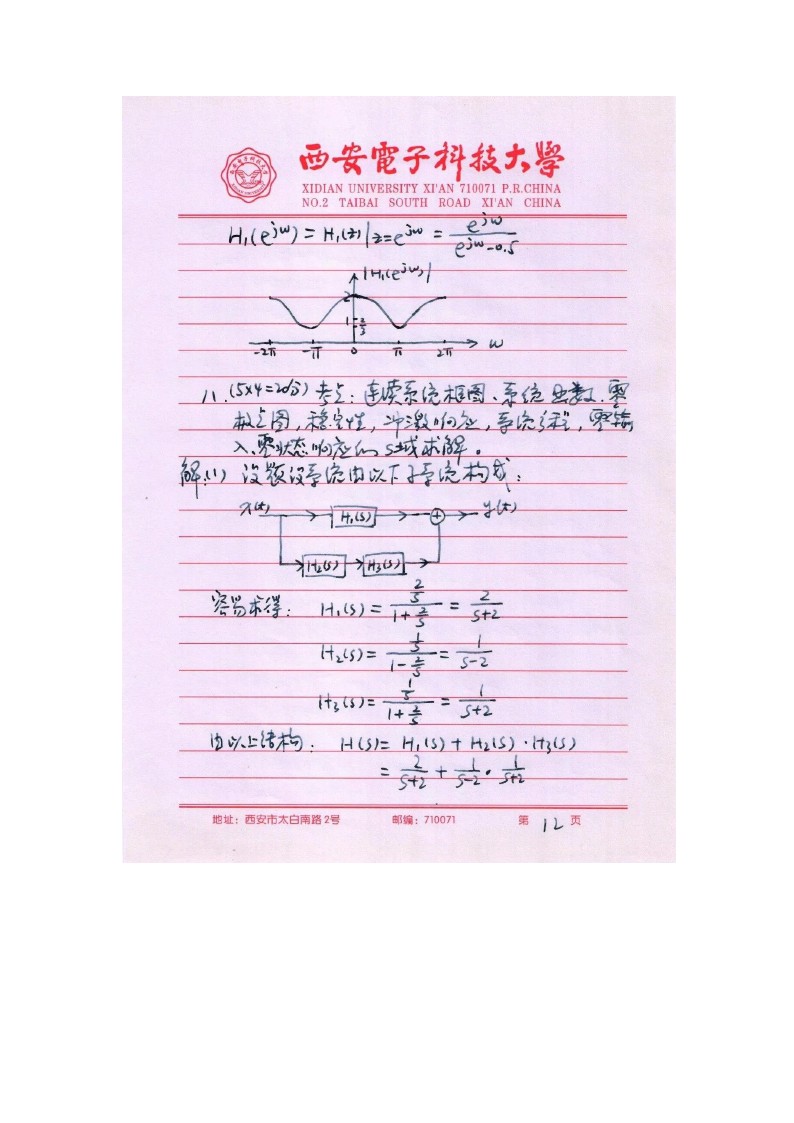 西安電子科技大學
XIDIAN UNIVERSITY XI'AN 710071 P.R.CHINA
NO.2 TAIBAI SOUTH ROAD XI'AN CHINA
H₁(e^{jω}) = H₁(z)|z=e^{jω} = e^{jω}/(e^{jω}-0.5)
|H₁(e^{jω})|
2
1 2/3
-2π -π 0 π 2π ω
八.(5×4=20分) 考点：连续系统框图、系统函数、零
极点图，稳定性，冲激响应，系统方程，零输
入、零状态响应的S域求解。
解:(1) 设题设系统由以下子系统构成：
x(t) H₁(s) + y(t)
H₂(s) H₃(s)
容易求得： H₁(s) = (2/s)/(1+2/s) = 2/(s+2)
H₂(s) = (1/s)/(1-2/s) = 1/(s-2)
H₃(s) = (1/s)/(1+2/s) = 1/(s+2)
由以上结构： H(s) = H₁(s) + H₂(s)·H₃(s)
= 2/(s+2) + 1/(s-2)·1/(s+2)
地址：西安市太白南路2号 邮编：710071 第 12 页